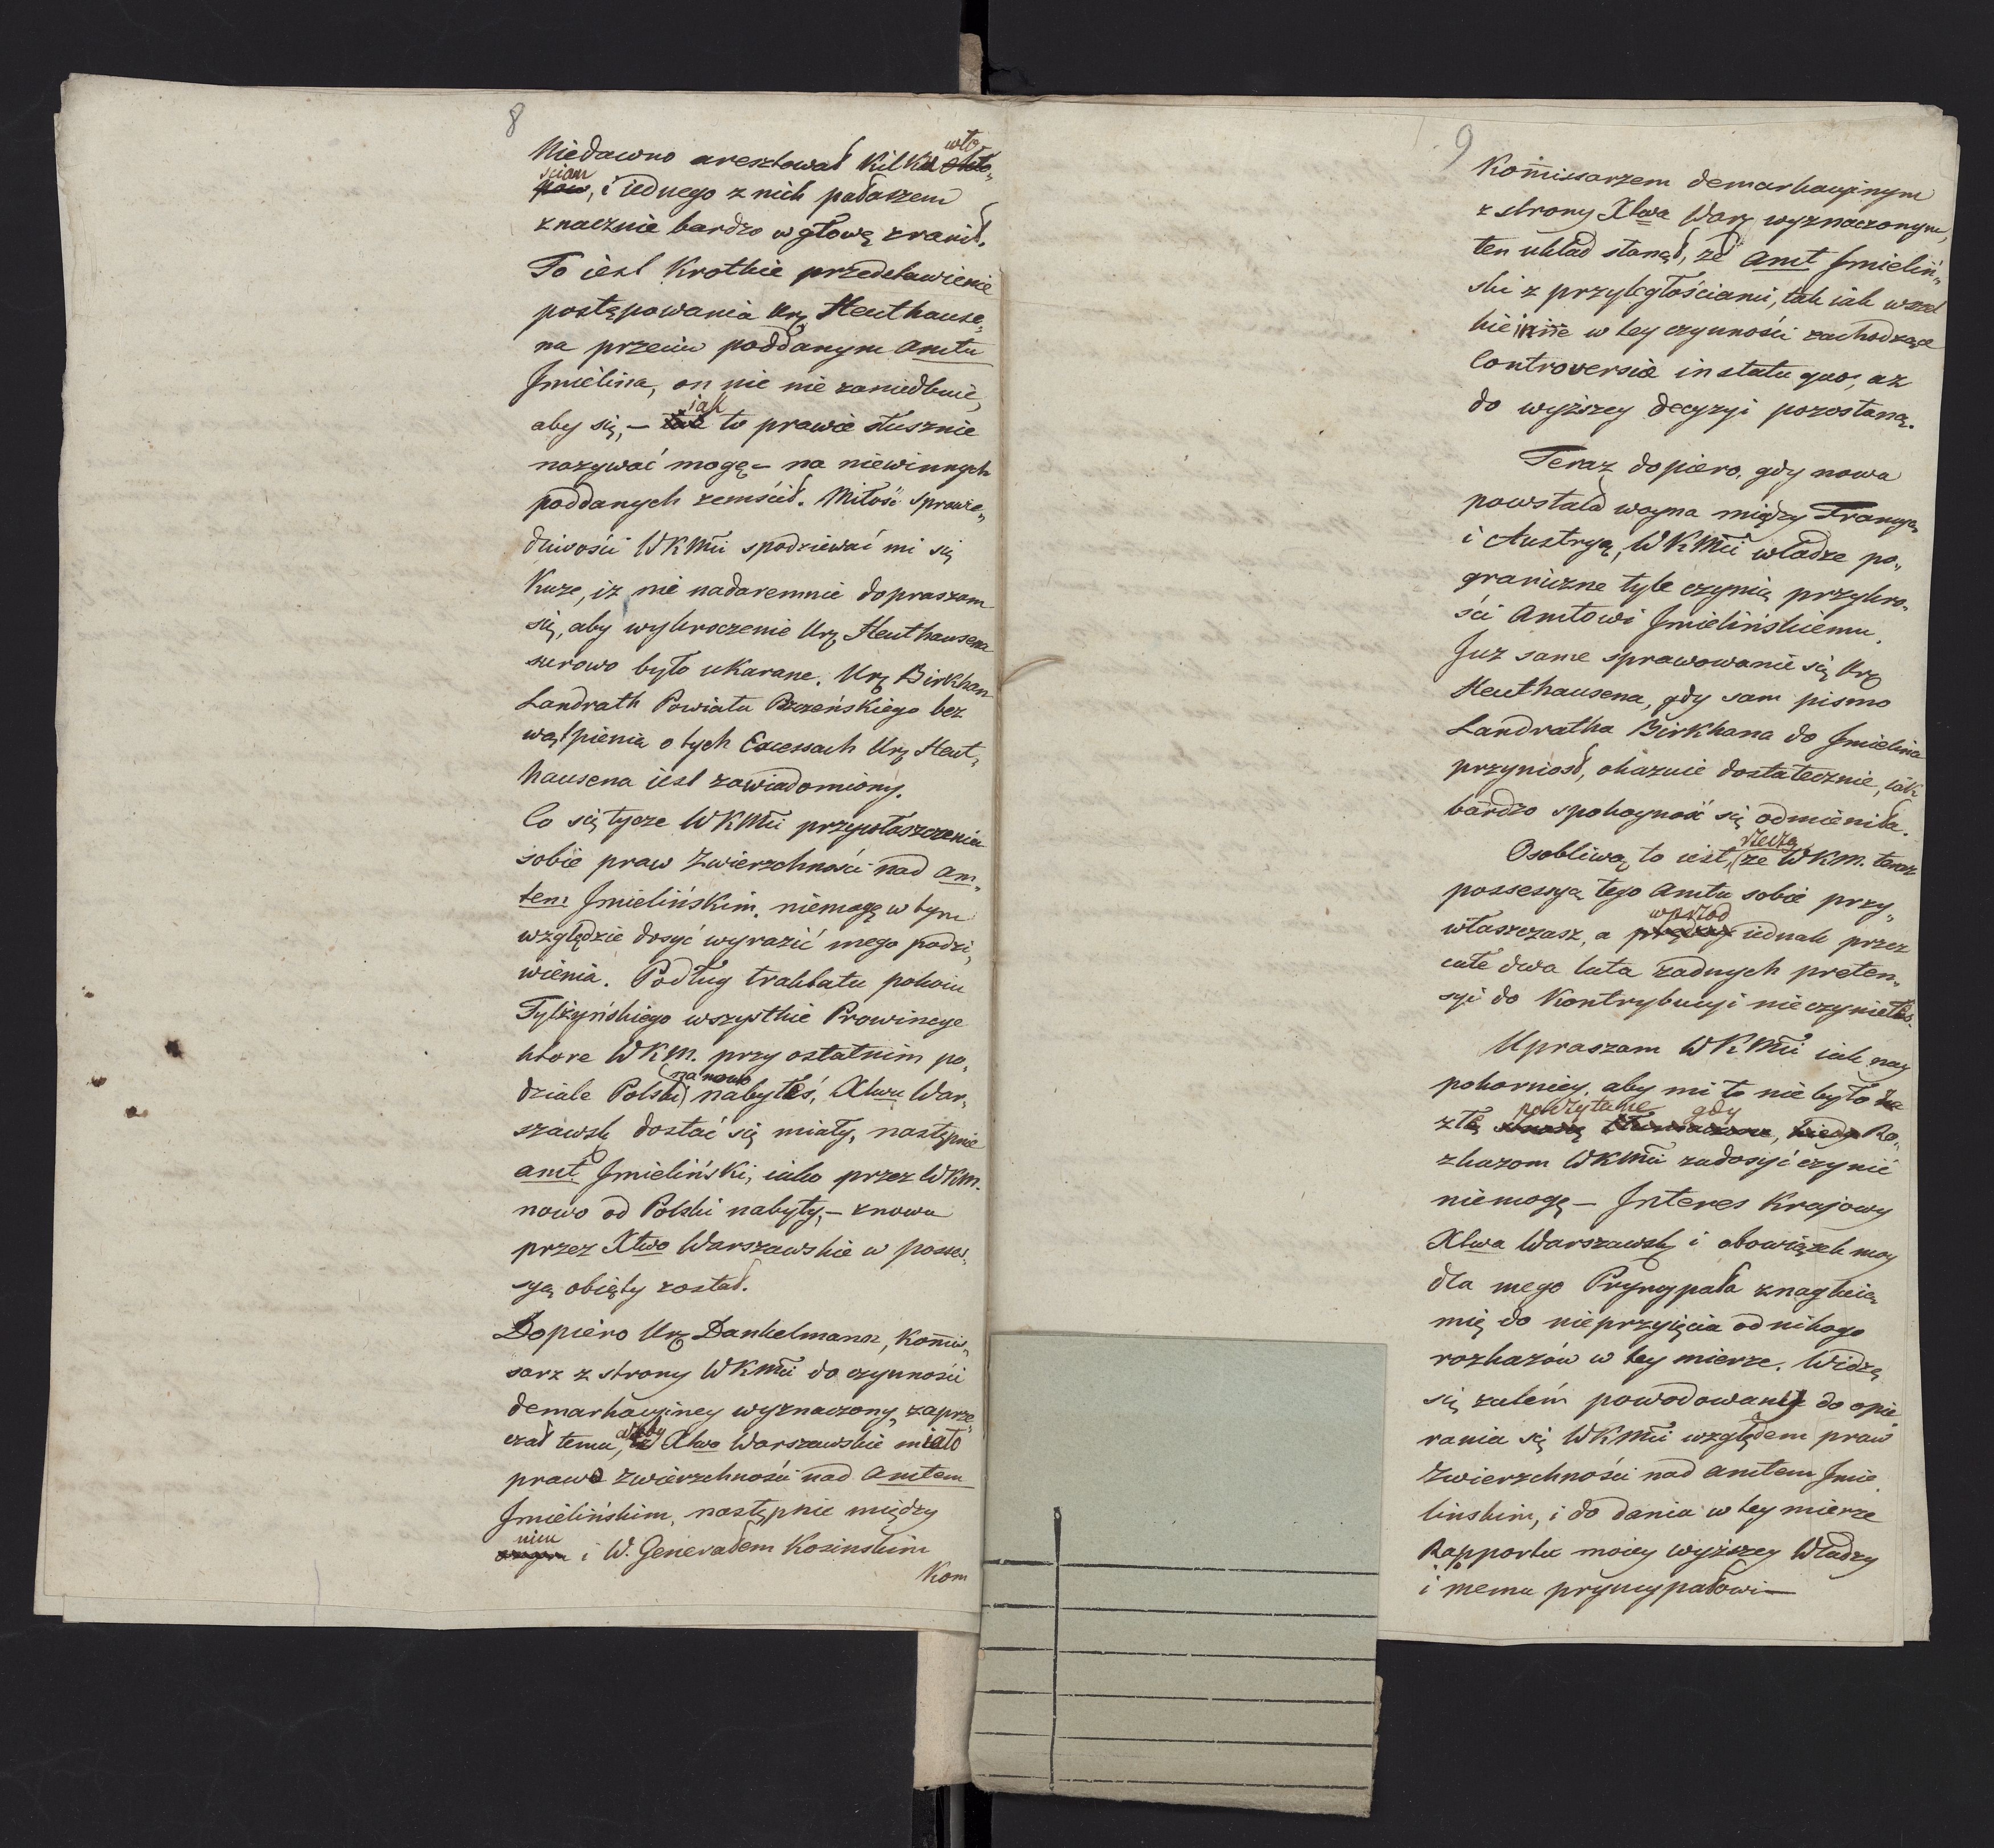 8
Niedawno aresztował kilku wło„
ścian, i iednego z nich pałaszem
znacznie bardzo w głowę zranił.
To iest krotkie przedstawienie
postępowania Urz Heuthause„
na przeciw poddanym Amtu
Jmielina, on nic nie zaniedbuie,
aby się, – iak to prawie słusznie
nazywać mogę – na niewinnych
poddanych zemścił. Miłość sprawie„
dliwości WKMći spodziewać mi się
kaze, iz nie nadaremnie dopraszam
się, aby wykroczenie Urz Heuthausena
surowo było ukarane. Urz Birkhan
Landrath Powiatu Pszczeńskiego bez
wątpienia o tych Excessach Urz Heut„
hausena iest zawiadomiony.
Co się tycze WKMći przywłaszczenia
sobie praw Zwierzchności nad Am„
tem Jmielińskim, niemogę w tym
względzie dosyć wyrazić mego podzi„
wienia. Podług traktatu pokoiu
Tylżyńskiego wszystkie Prowincye
ktore WKM. przy ostatnim po„
dziale Polski na nowo nabyłeś, Xtwu War„
szawsk dostać się miały, następnie
Amt Jmieliński, iako przez WKM.
nowo od Polski nabyty, – znowu
przez Xtwo Warszawskie w posses„
syą obięty został.
Dopiero Urz Dankelmann, Kom̅is„
sarz z strony WKMći do czynności
demarkacyiney wyznaczony, zaprze„
czał temu, ażeby Xtwo Warszawskie miało
prawo zwierzchności nad Amtem
Jmielińskim, następnie między
nim i W. Generałem Kosinskim
Kom
9
Kom̅issarzem demarkacyinym
z strony Xtwa Warz wyznaczonym,
ten układ stanął, że Amt Jmieliń„
ski z przyległościami, tak iak wszel
kie inne w tey czynności zachodzące
Controversie in statu quo, aż
do wyższey decyzyi pozostaną.
Teraz dopiero, gdy nowa
powstała woyna między Francyą
i Austryą, WKMći władze po„
graniczne tyle czynią przykro„
ści Amtowi Jmielińskiemu.
Juz same sprawowanie się Urz
Heuthausena, gdy sam pismo
Landratha Birkhana do Jmielina
przyniosł, okazuie dostatecznie, iak
bardzo spokoyność się odmieniła.
Osobliwą to iest rzeczą, że WKM. teraz
possessyą tego Amtu sobie przy„
właszczasz, a wprzod iednak przez
całe dwa lata żadnych preten„
syi do Kontrybucyi nieczyniłeś.
Upraszam WKMći iak nay
pokorniey, aby mi to nie było za
złe poczytane, gdy Ro„
zkazom WKMći zadosyć czynić
niemogę – Jnteres Krajowy
Xtwa Warszawsk i obowiązek moy
dla mego Pryncypała znagleią
mię do nieprzyięcia od nikogo
rozkazów w tey mierze. Widzę
się zatém powodowany do opie
rania się WKMći względem praw
Zwierzchności nad Amtem Jmie„
linskim, i do dania w tey mierze
Rapportu moiey wyższey Władzy
i memu pryncypałowi –